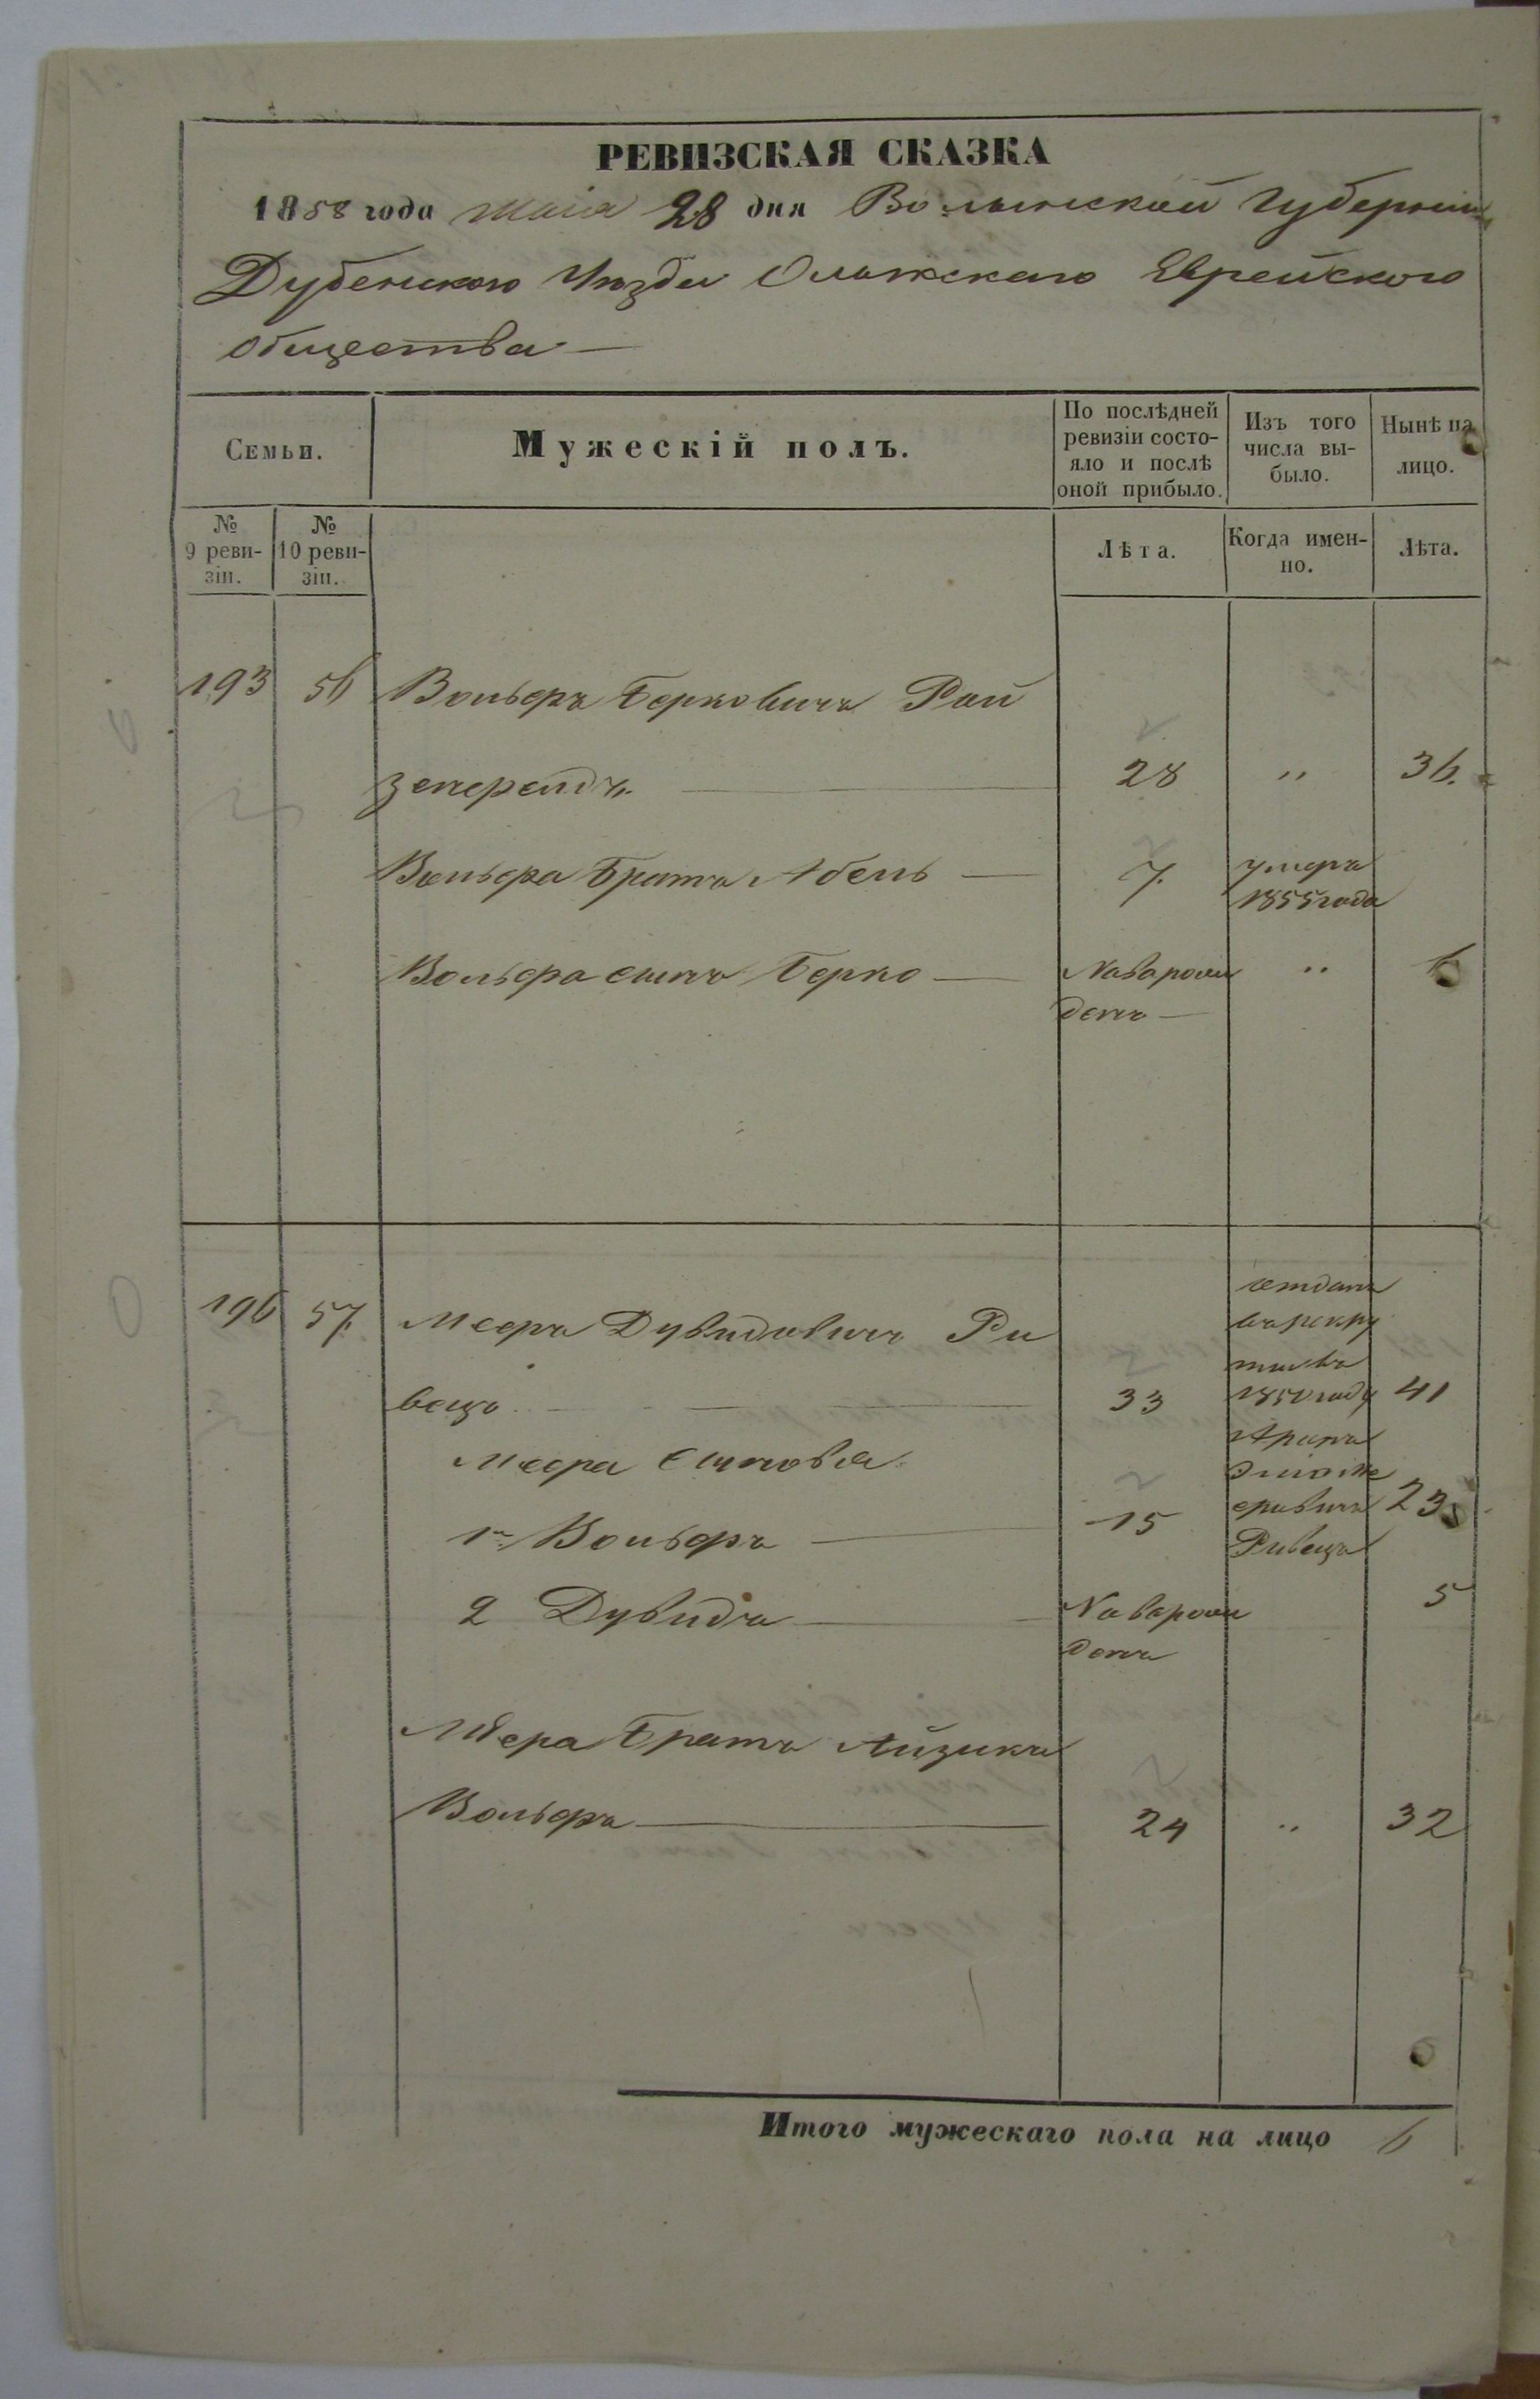 РЕВИЗСКАЯ СКАЗКА
1858 года Маія 28 дня Волынской Губерніи
Дубенского Уѣзда Олыкскаго Еврейского
общества —
Семьи.
Мужескій полъ.
По послѣдней ревизіи состо-
яло и послѣ
оной прибыло.
Изъ того
числа вы-
было.
Нынѣ на
лицо.
№
9 реви-
зіи.
№
10 реви-
зіи.
Лѣта.
Когда имен-
но.
Лѣта.
193 56 Вольфъ Берковичъ Рай
28 " 36.
Вольфа братъ Абель — 7. умеръ
1855 года
Вольфа сынъ Берко — Новорож " 6
денъ —
отданъ
196 57. Мееръ Дувидовичъ Ри въ рекру
ты въ
вецъ 33 1850 году 41
Меера сыновья
1й Вольфъ 15 23
Ривецъ
2 Дувидъ Новорож 5
денъ
Меера братъ Айзикъ
Вольфъ 24 " 32
Итого мужескаго пола на лицо 6